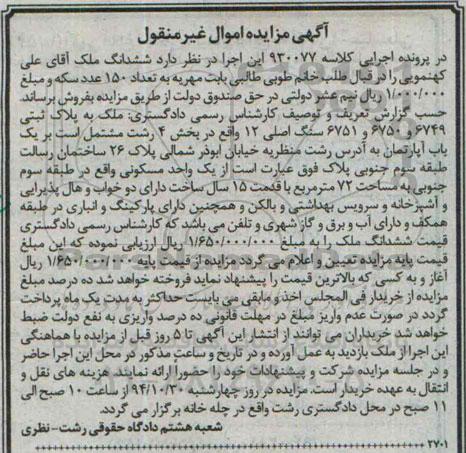 آگهی مزایده اموال غیر منقول
در پرونده اجرایی کلاسه ۹۳۰۰۷۷ این اجرا در نظر دارد ششدانگ ملک آقای علی
کهنمویی را در قبال طلب خانم طوبی طالبی بابت مهریه به تعداد ۱۵۰ عدد سکه و مبلغ
۱/۰۰۰/۰۰۰ ریال نیم عشر دولتی در حق صندوق دولت از طریق مزایده بفروش برساند.
حسب گزارش تعریف و توصیف کارشناس رسمی دادگستری: ملک به پلاک ثبتی
۶۷۴۹ و ۶۷۵۰ و ۶۷۵۱ سنگ اصلی ۱۲ واقع در بخش ۴ رشت مشتمل است بر یک
باب آپارتمان به آدرس رشت منظریه خیابان ابوذر شمالی پلاک ۲۶ ساختمان رسالت
طبقه سوم جنوبی پلاک فوق عبارت است از یک واحد مسکونی واقع در طبقه سوم
جنوبی به مساحت ۷۲ مترمربع با قدمت ۱۵ سال ساخت دارای دو خواب و هال پذیرایی
و آشپزخانه و سرویس بهداشتی و بالکن و همچنین دارای پارکینگ و انباری در طبقه
همکف و دارای آب و برق و گاز شهری و تلفن می باشد که کارشناس رسمی دادگستری
قیمت ششدانگ ملک را به مبلغ ۱/۶۵۰/۰۰۰/۰۰۰ ریال ارزیابی نموده که این مبلغ
قیمت پایه مزایده تعیین و اعلام می گردد مزایده از قیمت پایه ۱/۶۵۰/۰۰۰/۰۰۰ ریال
آغاز و به کسی که بالاترین قیمت را پیشنهاد نماید فروخته خواهد شد ده درصد مبلغ
مزایده از خریدار فی المجلس اخذ و مابقی می بایست حداکثر به مدت یک ماه پرداخت
گردد در صورت عدم واریز مبلغ در مهلت قانونی ده درصد واریزی به نفع دولت ضبط
خواهد شد خریداران می توانند از انتشار این آگهی تا ۵ روز قبل از مزایده با هماهنگی
این اجرا از ملک بازدید به عمل آورده و در تاریخ و ساعت مذکور در محل این اجرا حاضر
و در جلسه مزایده شرکت و پیشنهادات خود را حضورا ارائه نمایند. هزینه های نقل و
انتقال به عهده خریدار است. مزایده در روز چهارشنبه ۹۴/۱۰/۳۰ از ساعت ۱۰ صبح الی
۱۱ صبح در محل دادگستری رشت واقع در چله خانه برگزار می گردد.
شعبه هشتم دادگاه حقوقی رشت- نظری
۲۷۰۱